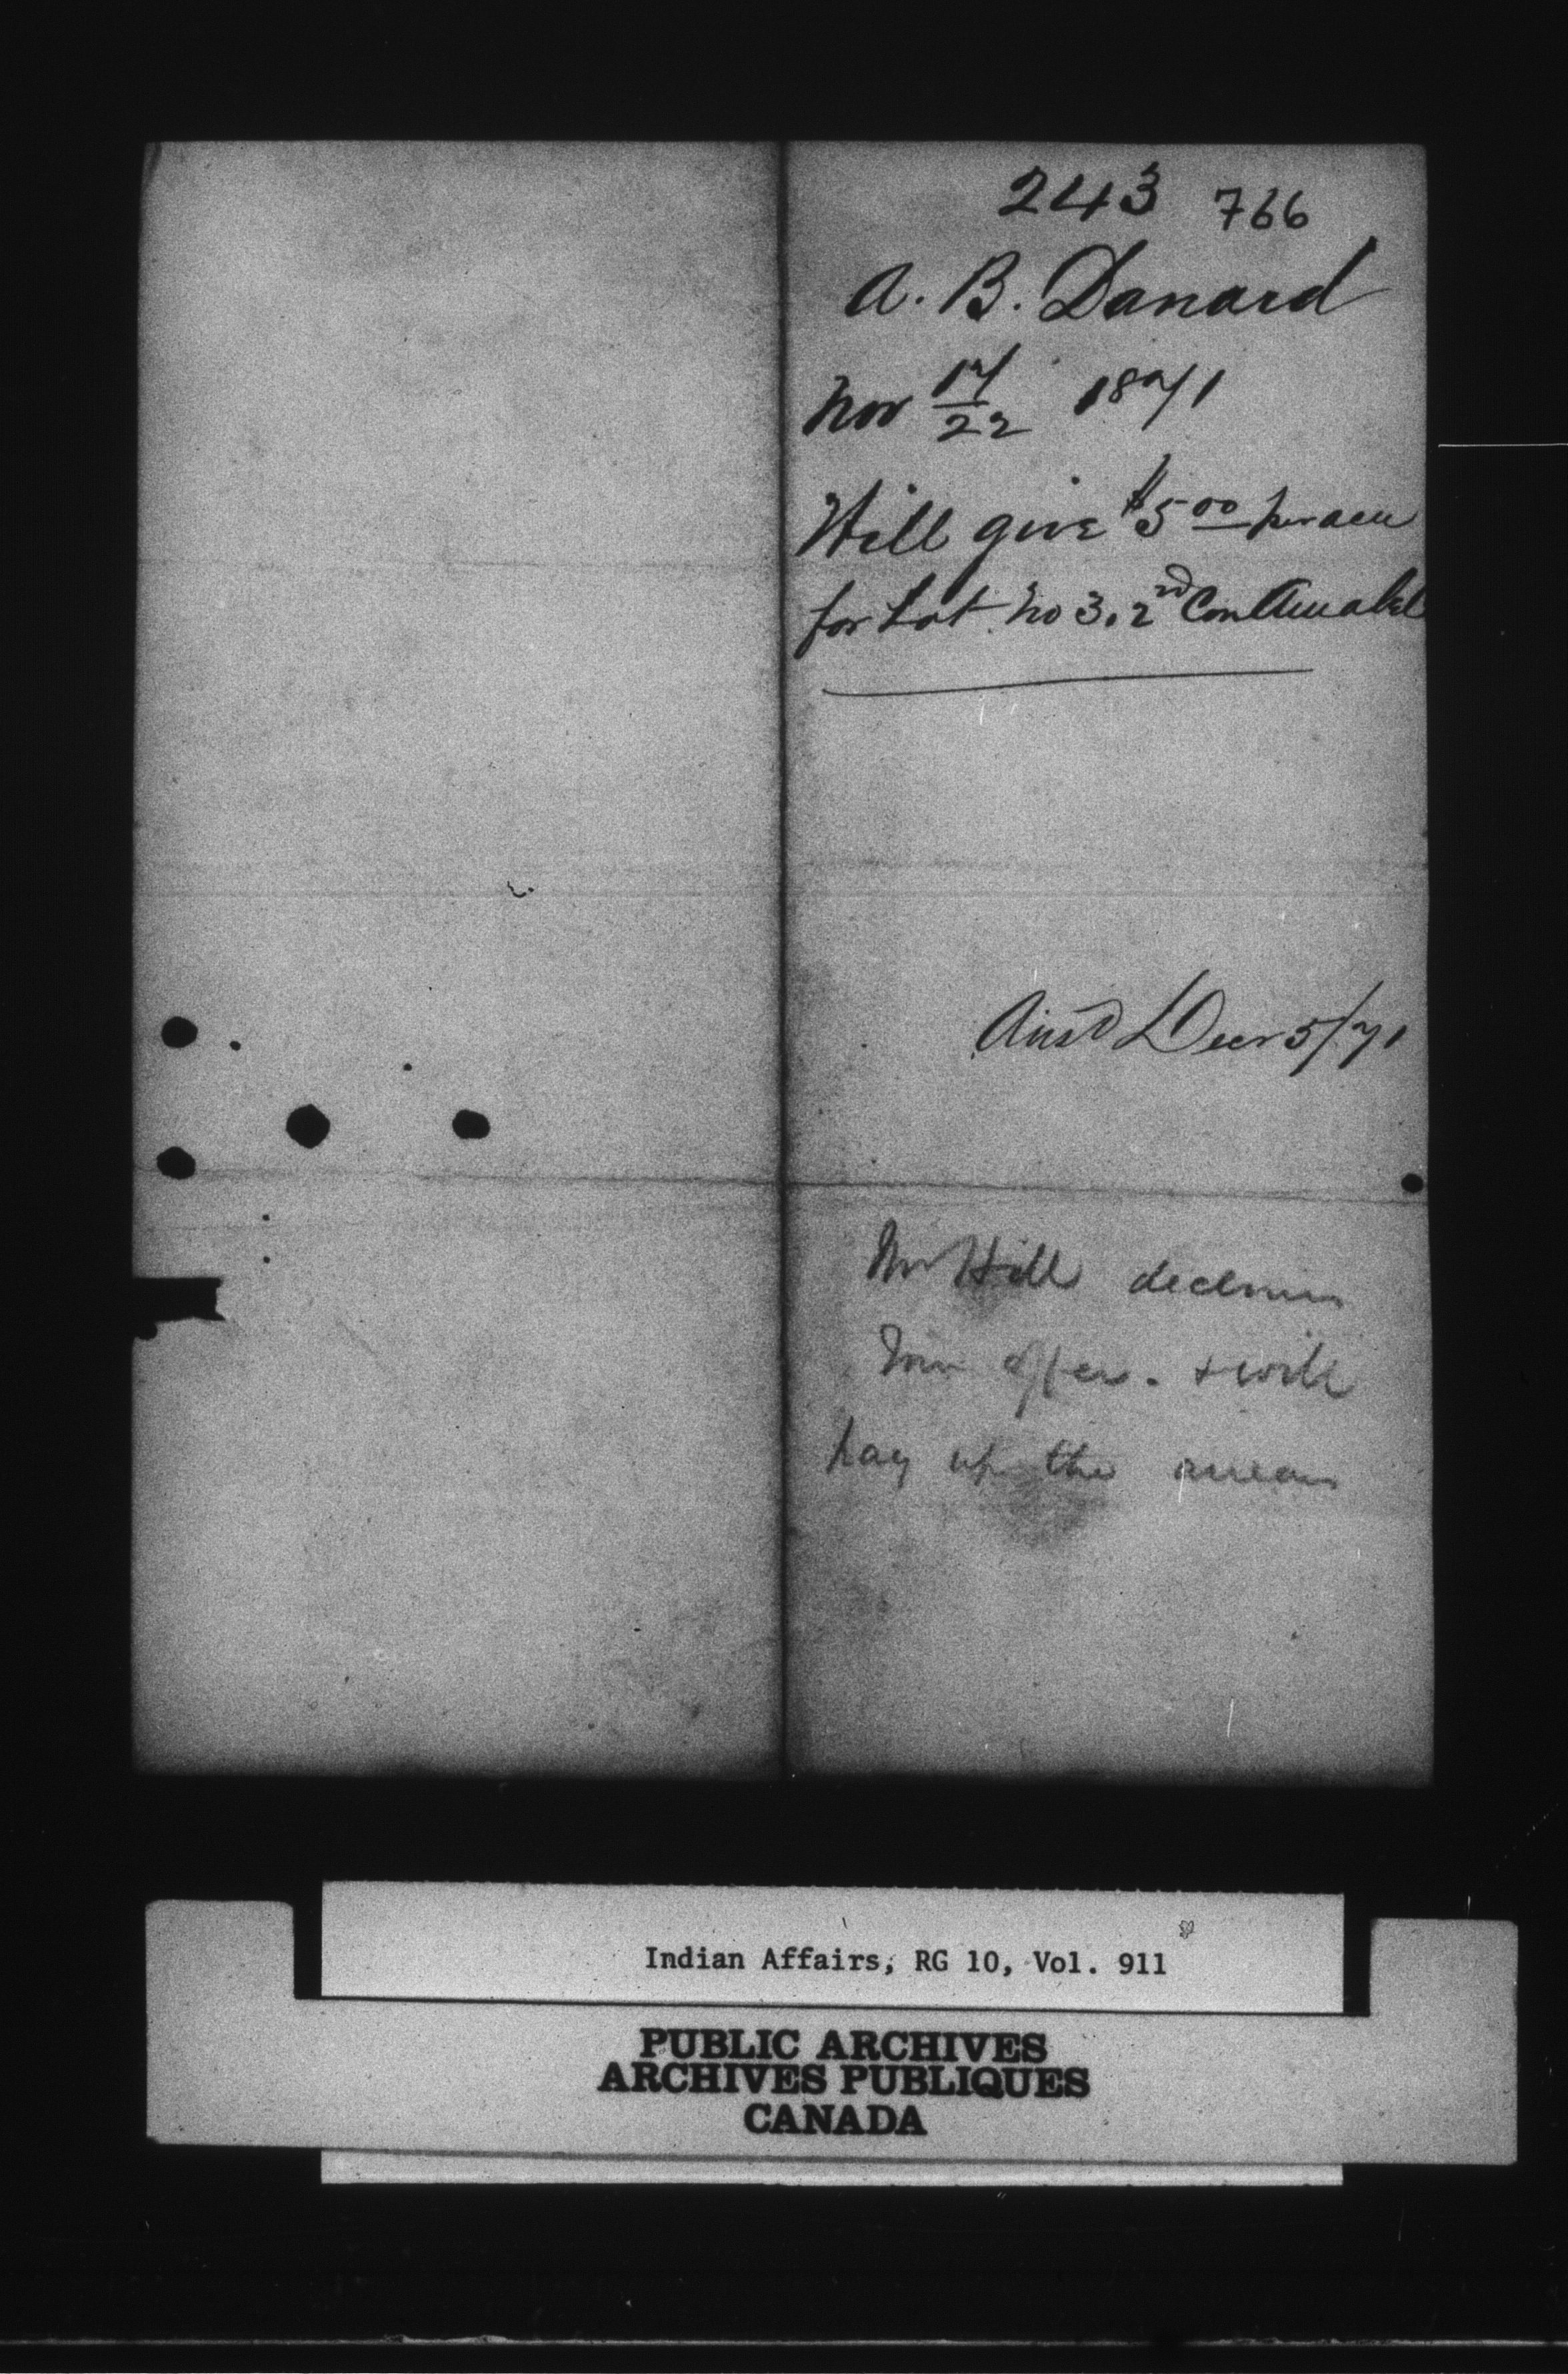 243 766
A. B. Danard
Nov 17/22 1871
Will give $5.00 per acre
for Lot No 3. 2nd Con Amabel
Ansd Decr 5/71
Mr Hill declines
your offer. & will
pay up the arrears
Indian Affairs, RG 10, Vol. 911
PUBLIC ARCHIVES
ARCHIVES PUBLIQUES
CANADA